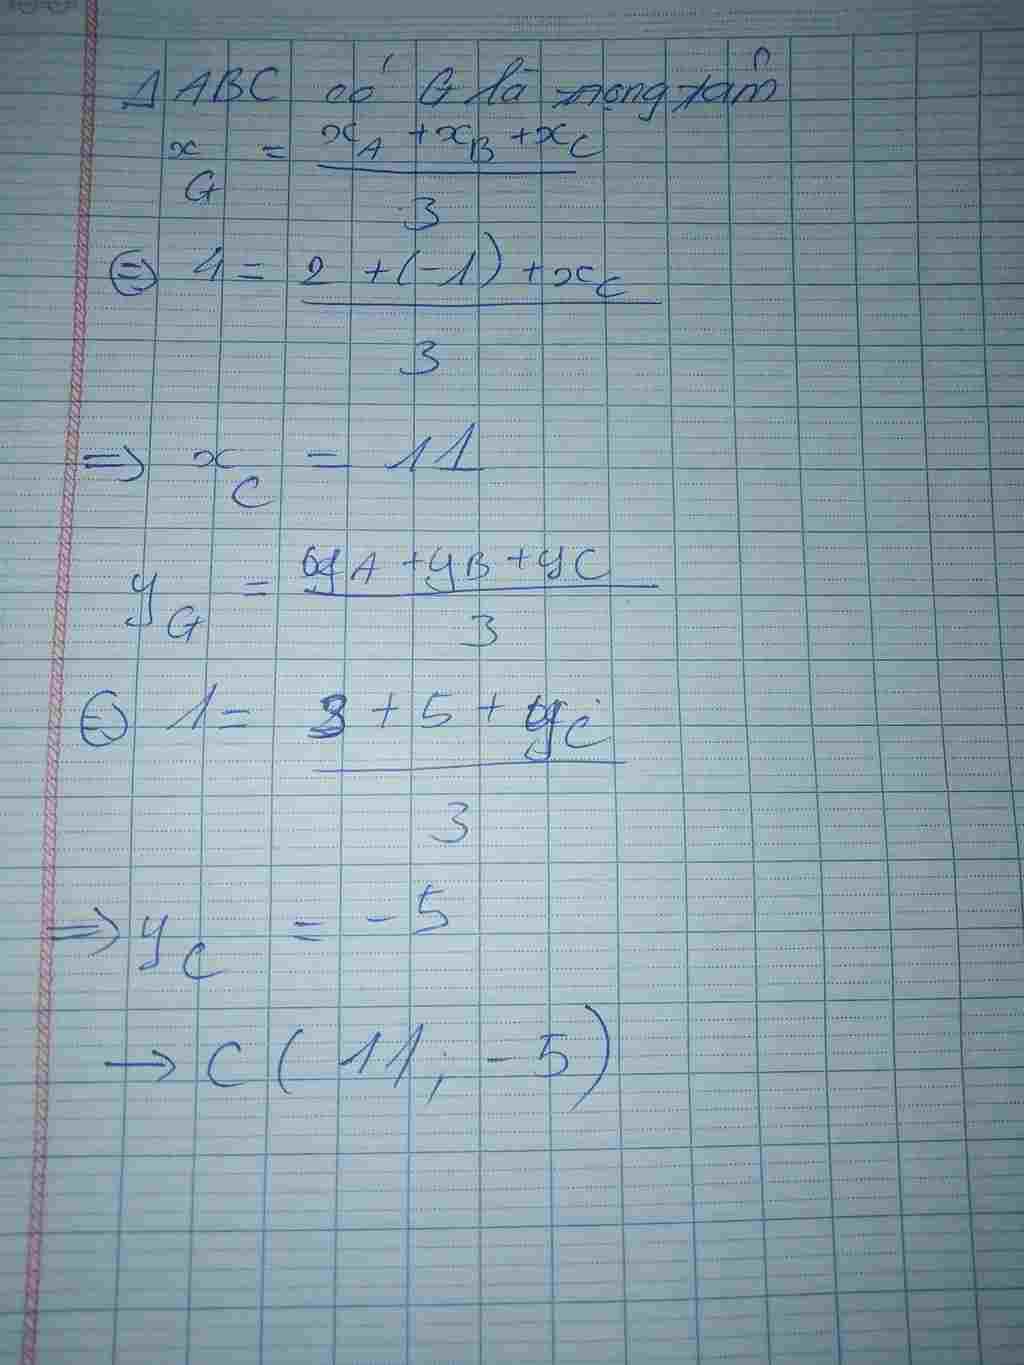 Δ ABC có G là trọng tâm
x_G = (x_A + x_B + x_C) / 3
⇔ 4 = (2 + (-1) + x_C) / 3
⇒ x_C = 11
y_G = (y_A + y_B + y_C) / 3
⇔ 1 = (3 + 5 + y_C) / 3
⇒ y_C = -5
→ C (11; -5)